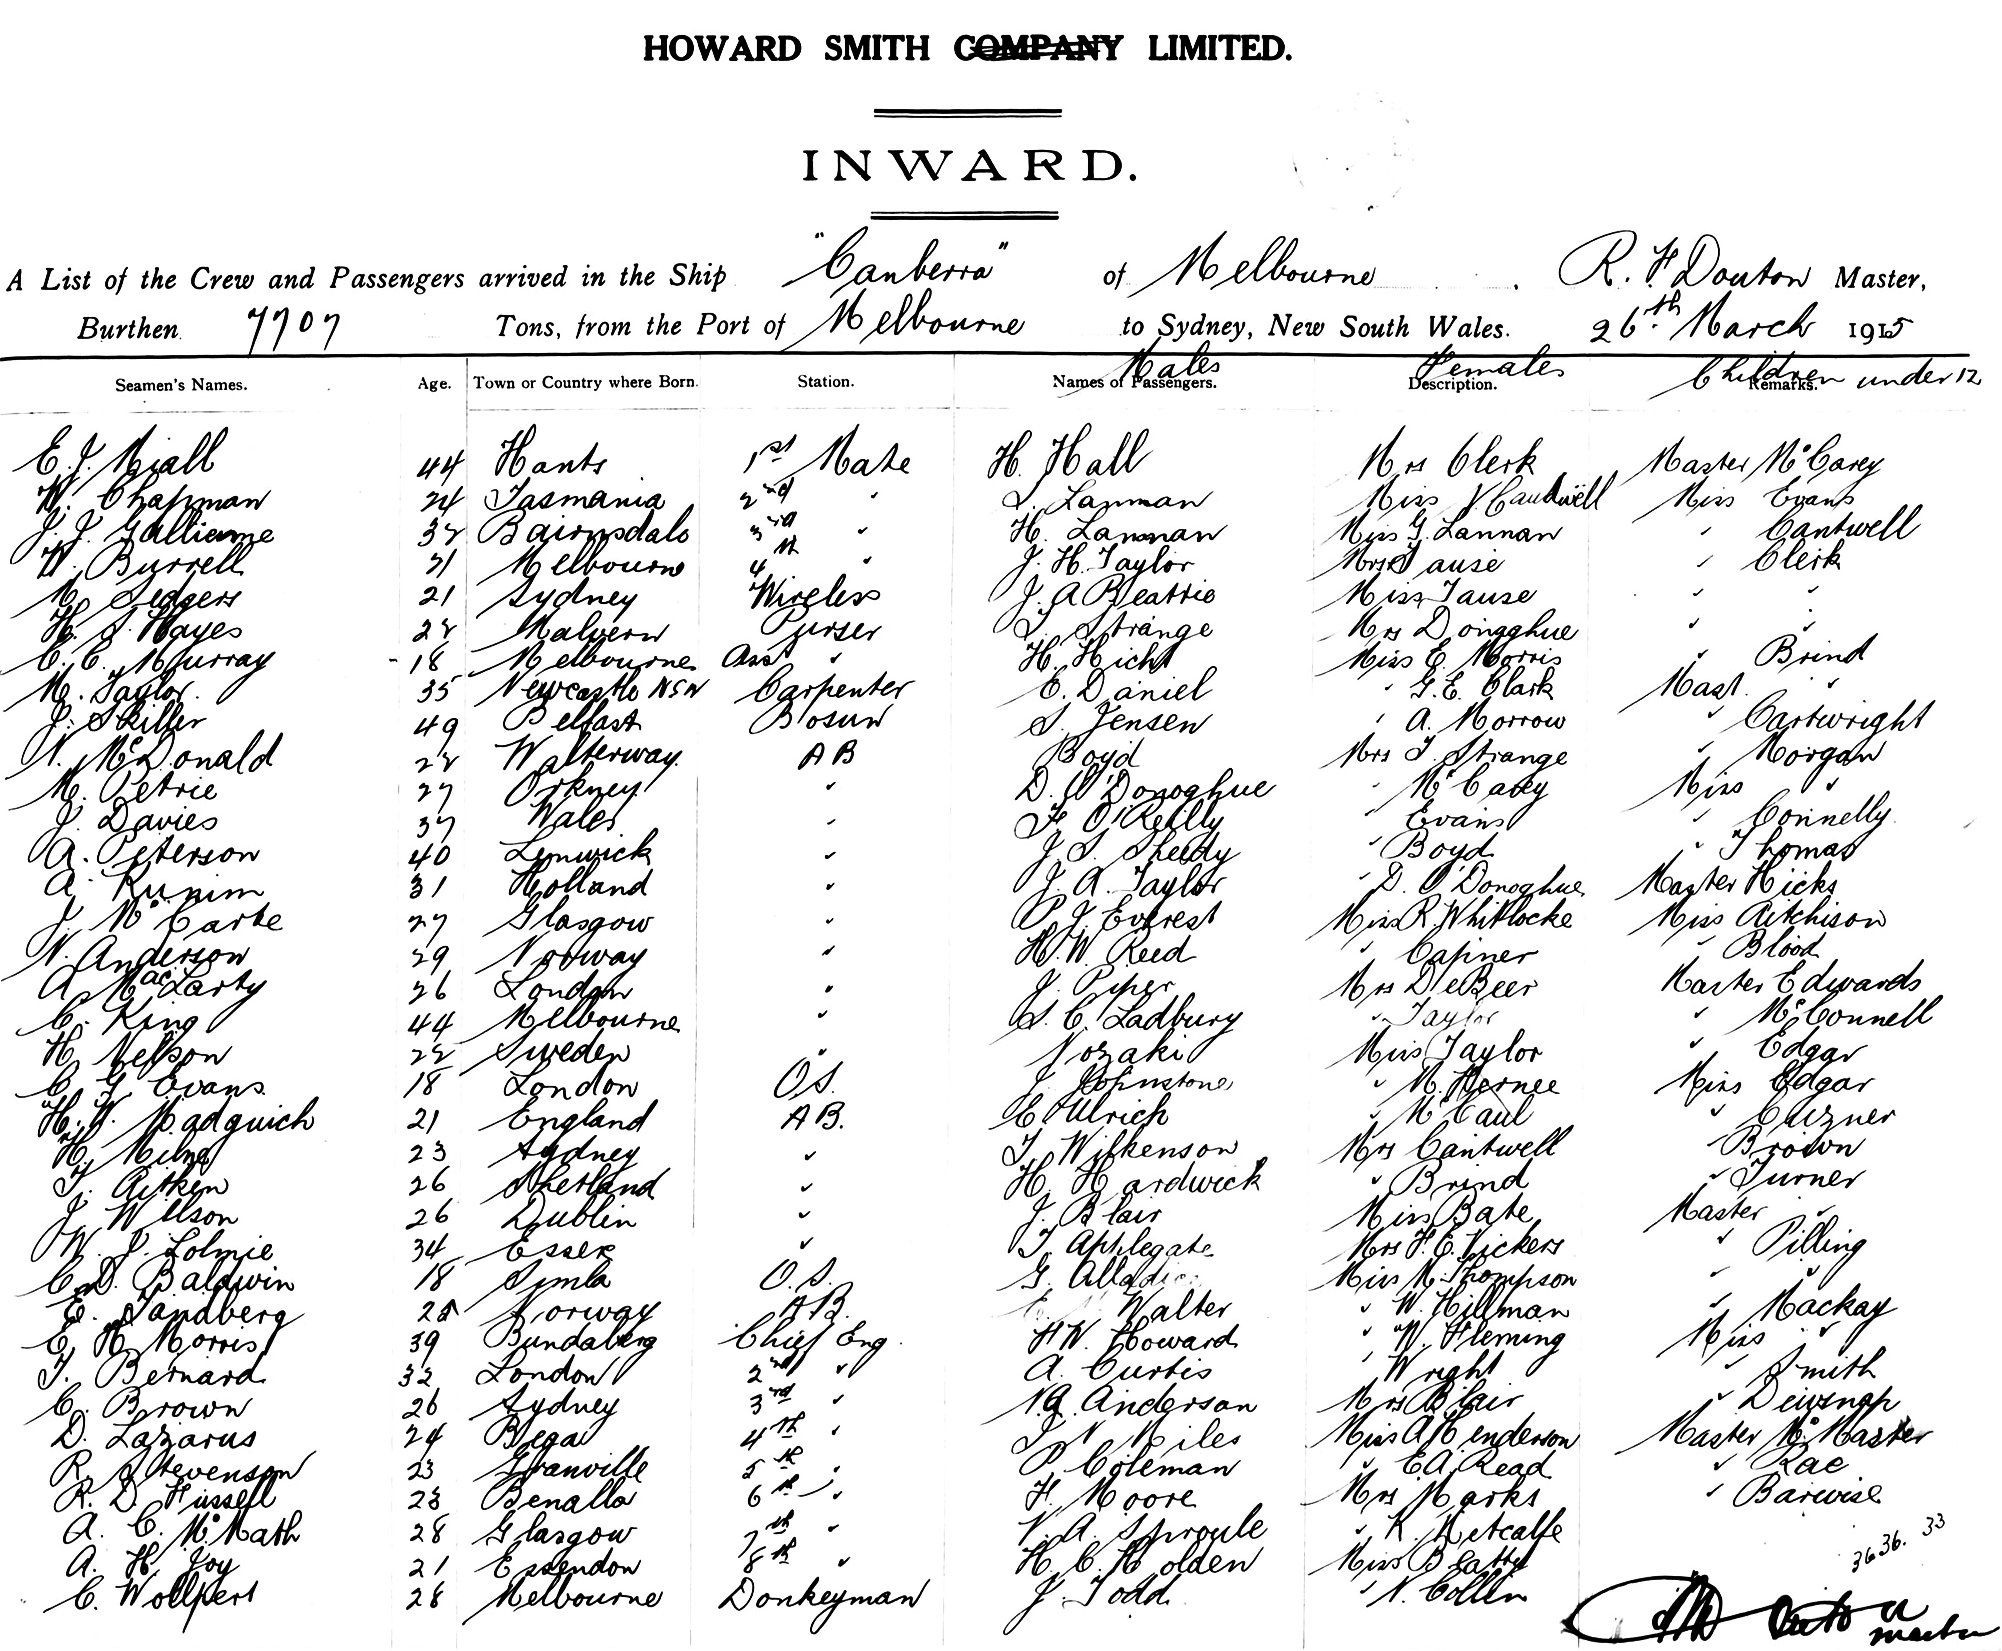 HOWARD SMITH COMPANY LIMITED.
INWARD.
A List of the Crew and Passengers arrived in the Ship "Canberra" of Melbourne R. F Douton Master,
Burthen 7707 Tons, from the Port of Melbourne to Sydney, New South Wales. 26th. March 1915
Males Females Children under 12
Seamen's Names. Age. Town or Country where Born. Station. Names of Passengers. Description. Remarks.
E. J. Niall 44 Hants 1st Mate H. Hall Mrs Clerk Master McCarey
W. Chapman 24 Tasmania 2nd " Lanman Miss V Caudwell Miss Evans
J. J. Galliame 32 Bairnsdale 3rd " H. Lannan Miss G. Lannan " Cantwell
W. Burrell 21 Melbourne 4th " J. H. Taylor Mrs Tause " Clerk
M. Sedgers 21 Sydney Wireless J. A Beattie Miss Tause " "
H. S. Hayes 22 Malvern Purser Strange Mrs Donaghue " "
C. C. Murray 18 Melbourne Asst " H. Hicht Miss E. Morris " Brind
M. Taylor. 35 Newcastle NSW Carpenter E. Daniel " G. E. Clark Mast. "
J. Skiller 49 Belfast Bosun S. Jensen " A. Morrow " Cartwright
N. McDonald 22 Walterway. A B Boyd Mrs T. Strange " Morgan
M. Petrie 27 Orkney " D. O'Donoghue " McCarey Miss "
J. Davies 37 Wales " F O'Reilly " Evans " Connelly
A. Peterson 40 Lenwick " J. S. Sheedy " Boyd " Thomas
A. Runim 31 Holland " J. A. Taylor " D. O'Donoghue Master Hicks
J. McCarte 27 Glasgow " P. J. Everest Miss R Whitlocke Miss Aitchison
N. Anderson 29 Norway " H. W. Reed " Capner " Blood
A. MacLarty 26 London " J. Piper Mrs DeBeer Master Edwards
C. King 44 Melbourne " S. C. Ladbury " Taylor " McConnell
H. Nelson 22 Sweden " Nozaki Miss Taylor " Edgar
C. G. Evans 18 London O.S. J. Johnstone " M. Kernee Miss Edgar
H. W. Madguich 21 England A B. E Ulrich " McCaul " Cuzner
H. Milne 23 Sydney " T. Wilkenson Mrs Cantwell Brown
T. Aitken 26 Shetland " H. Hardwick " Brind " Turner
J. Wilson 26 Dublin " J. Blair Miss Bate Master "
W. J. Lolmie 34 Essex " T Applegate Mrs F. E. Vickers " Pilling
C. D. Baldwin 18 Simla O. S. G. Miss M. Thompson " "
E. Sandberg 25 Norway A B. Walter " W. Hillman " Mackay
E. H. Morris 39 Bundaberg Chief Eng. H W. Howard " W. Fleming Miss "
T. Bernard 32 London 2nd " A. Curtis " Wright " Smith
C. Brown 26 Sydney 3rd " N. G. Anderson Mrs Blair " Dewsnap
D. Lazarus 24 Bega 4th " Niles Miss A Henderson Master McMaster
R. J Stevenson 23 Granville 5th " P Coleman " E. A. Read " Rae
R. D. Fussell 23 Benalla 6th " F. Moore Mrs Marks " Barwise
A. C. McMath 28 Glasgow 7th " N. A. Sproule " K. Metcalfe
A. H. Joy 21 Essendon 8th " H. C. Holden Miss Beatty 36 36. 33
C. Wollpert 28 Melbourne Donkeyman J. Todd " N. Collin
master